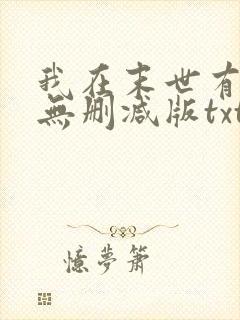 我在末世有
無删减版txt
憶夢簫